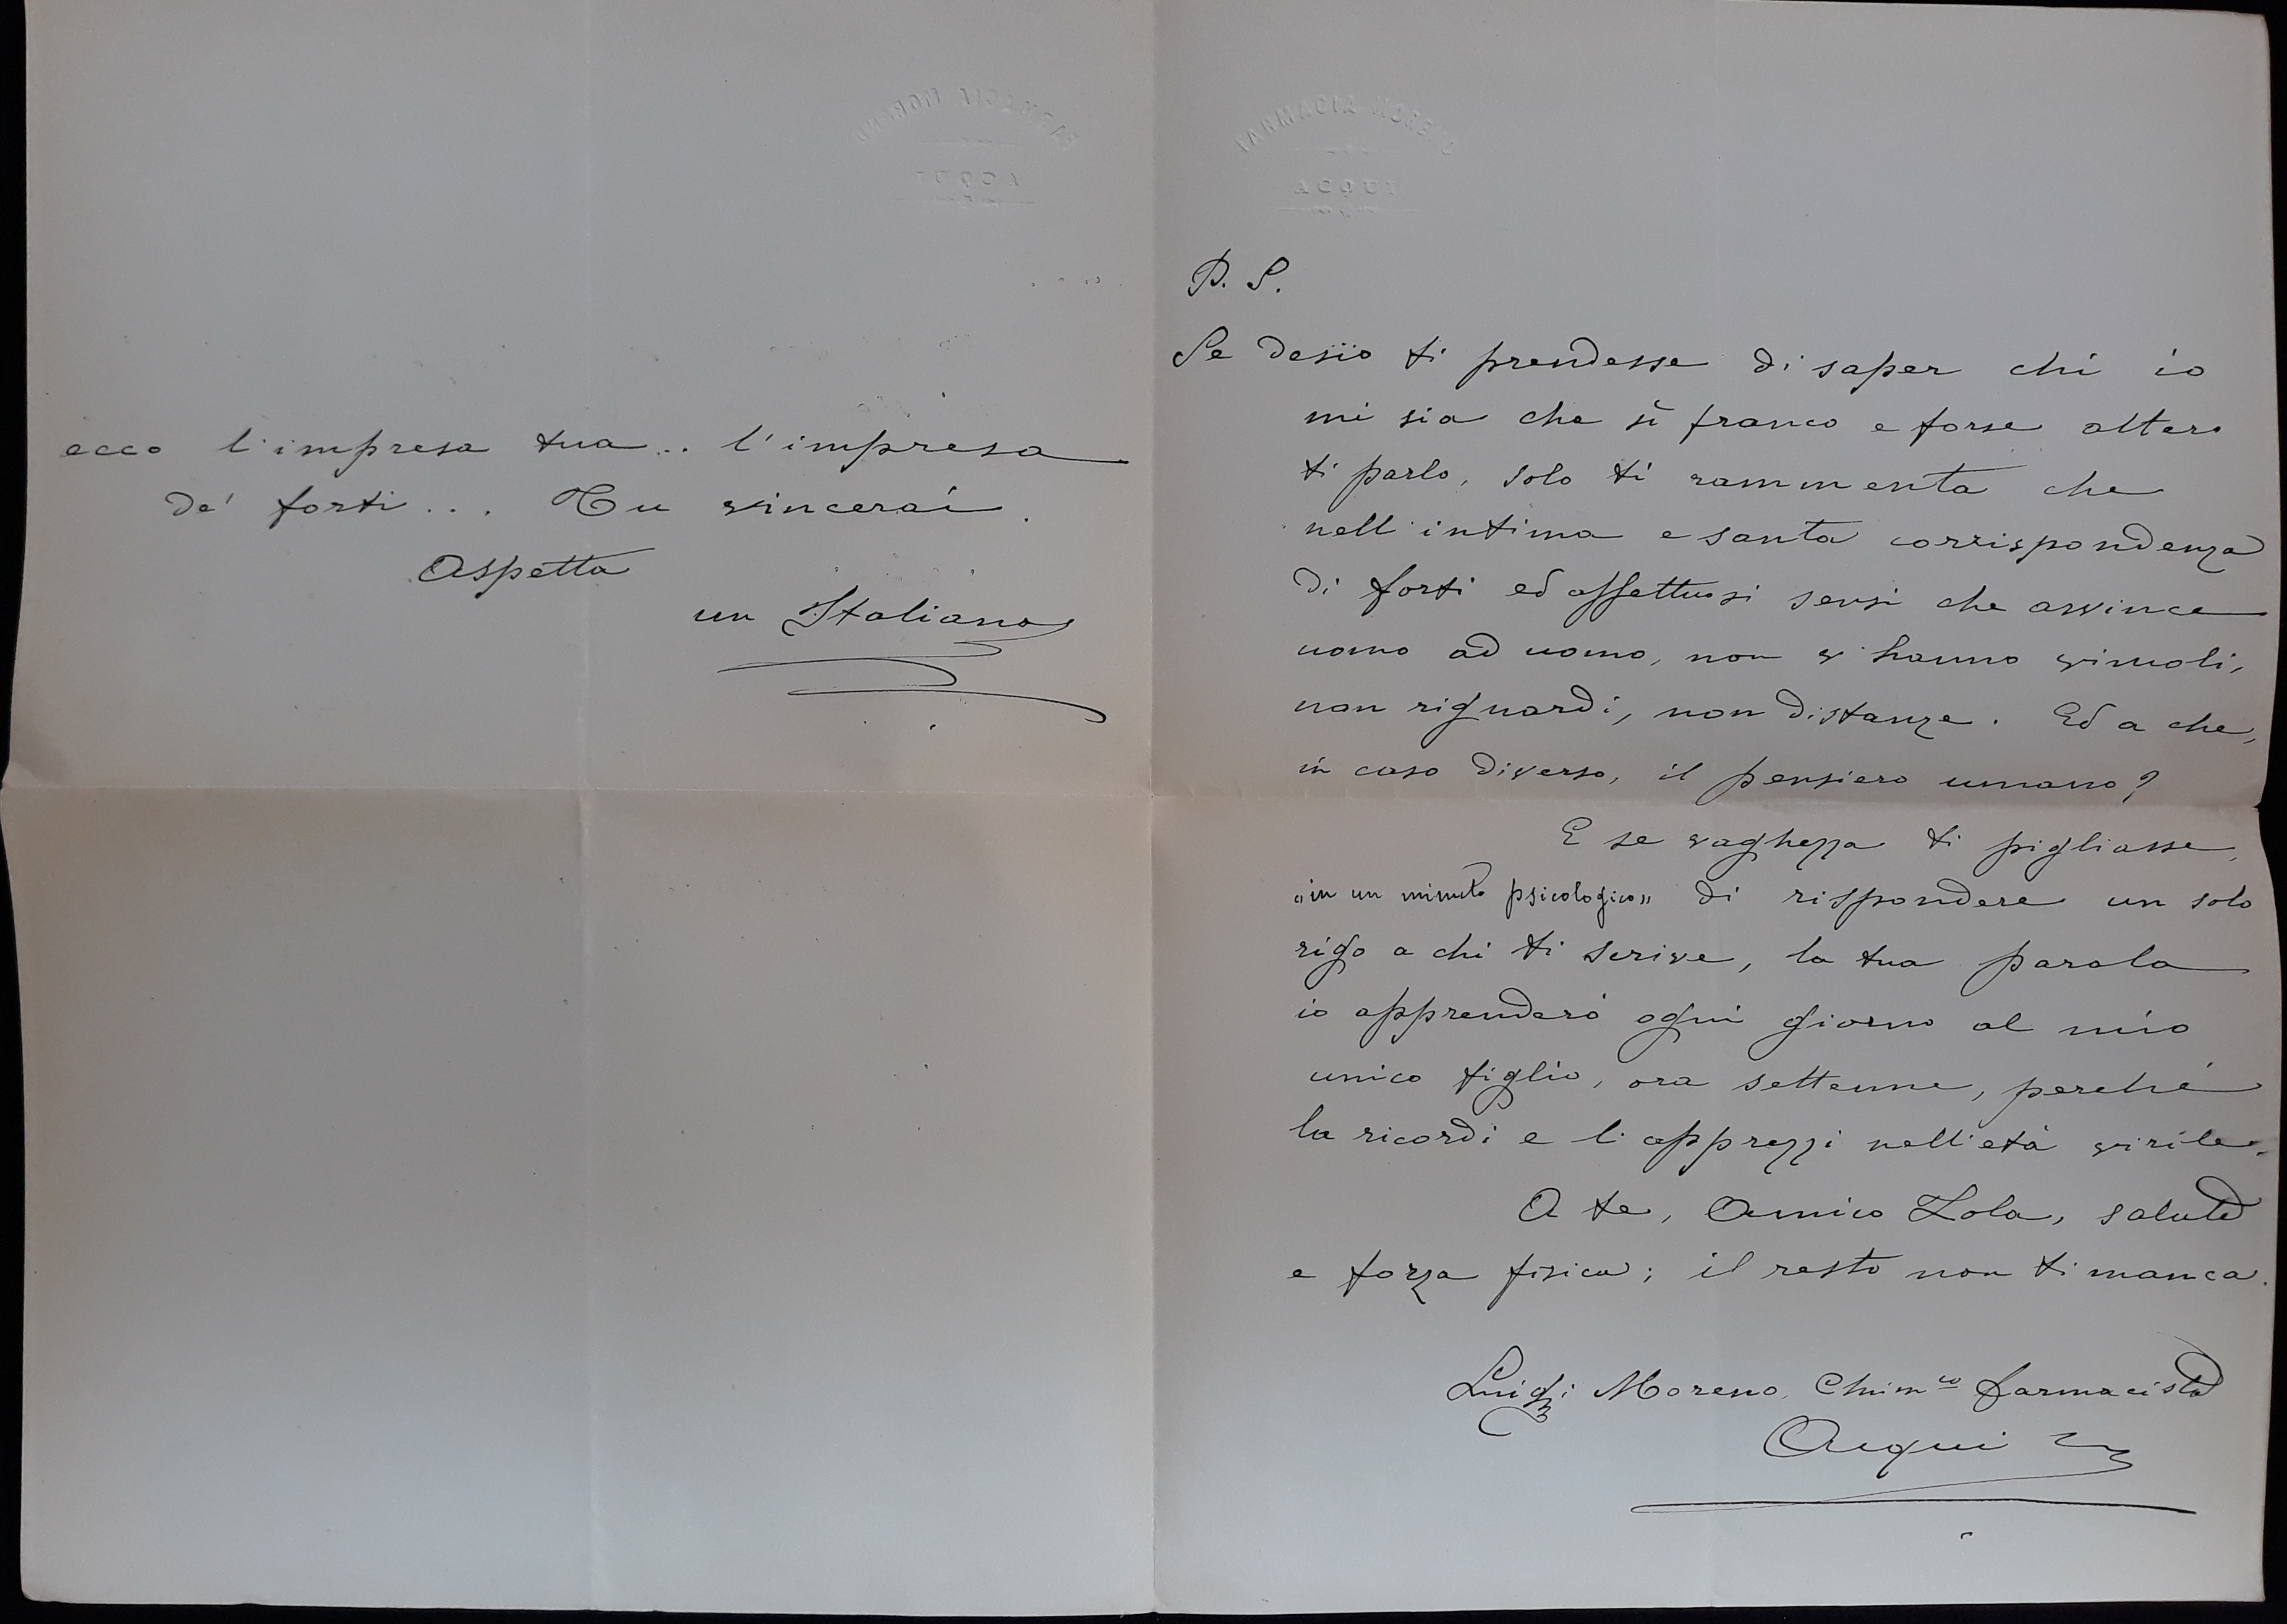 ecco l'impresa tua... l'impresa
de' forti... Tu vincerai.
Aspetta
un Italiano
FARMACIA MORENO
ACQUI
P. S.
Se desìo ti prendesse di saper chi io
mi sia che sì franco e forse altero
ti parlo, solo ti rammenta che
nell'intima e santa corrispondenza
di forti ed affettuosi sensi che avvince
uomo ad uomo, non v'hanno vincoli,
non riguardi, non distanze. Ed a che,
in caso diverso, il pensiero umano?
E se vaghezza ti pigliasse,
"in un minuto psicologico" di rispondere un solo
rigo a chi ti scrive, la tua parola
io apprenderò ogni giorno al mio
unico figlio, ora settenne, perché
la ricordi e l'apprezzi nell'età virile.
A te, Amico Zola, salute
e forza fisica; il resto non ti manca.
Luigi Moreno, Chim.co farmacista
Acqui